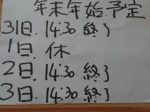 年末年始予定
31日 14:30 終了
1日 休
2日 14:30 終了
3日 14:30 終了